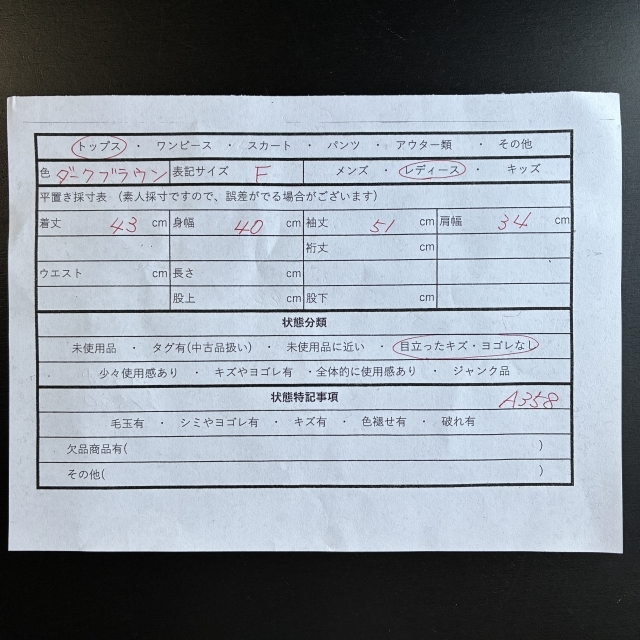 トップス ・ ワンピース ・ スカート ・ パンツ ・ アウター類 ・ その他
色 ダークブラウン 表記サイズ F メンズ ・ レディース ・ キッズ
平置き採寸表 （素人採寸ですので、誤差がでる場合がございます）
着丈 43 cm 身幅 40 cm 袖丈 51 cm 肩幅 34 cm
裄丈 cm
ウエスト cm 長さ cm
股上 cm 股下 cm
状態分類
未使用品 ・ タグ有(中古品扱い) ・ 未使用品に近い ・ 目立ったキズ・ヨゴレなし
少々使用感あり ・ キズやヨゴレ有 ・全体的に使用感あり ・ ジャンク品
状態特記事項 A358
毛玉有 ・ シミやヨゴレ有 ・ キズ有 ・ 色褪せ有 ・ 破れ有
欠品商品有( )
その他( )